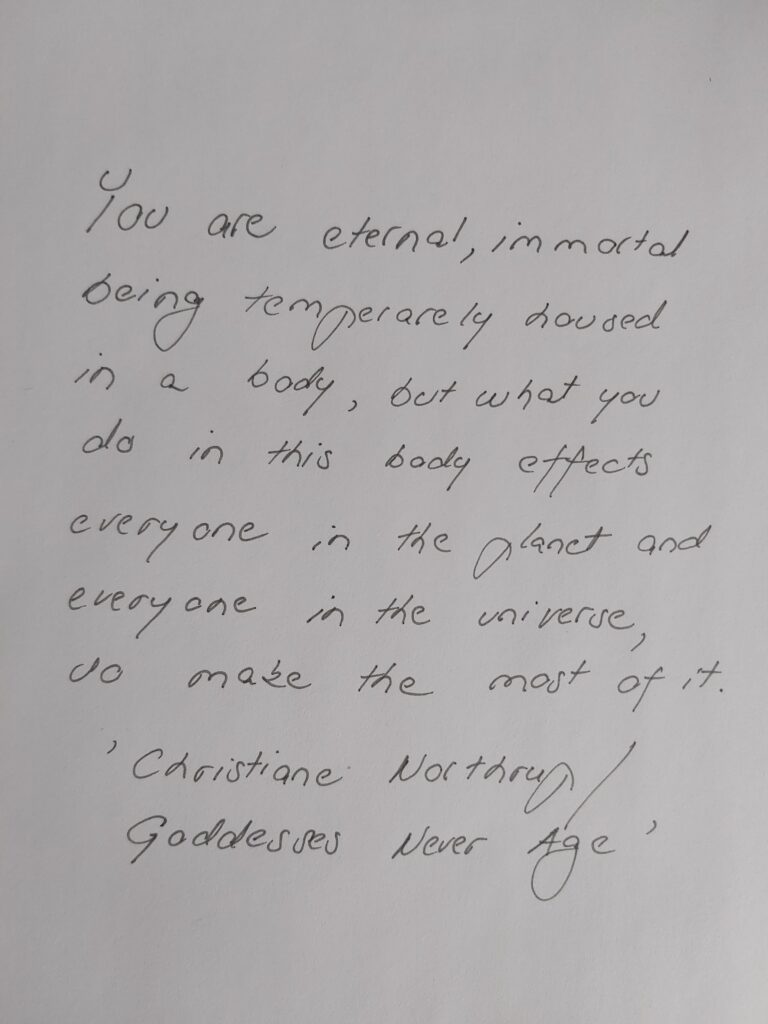 You are eternal, immortal
being temperarely housed
in a body, but what you
do in this body effects
everyone in the planet and
everyone in the universe,
so make the most of it.
' Christiane Northrup /
Goddesses Never Age '